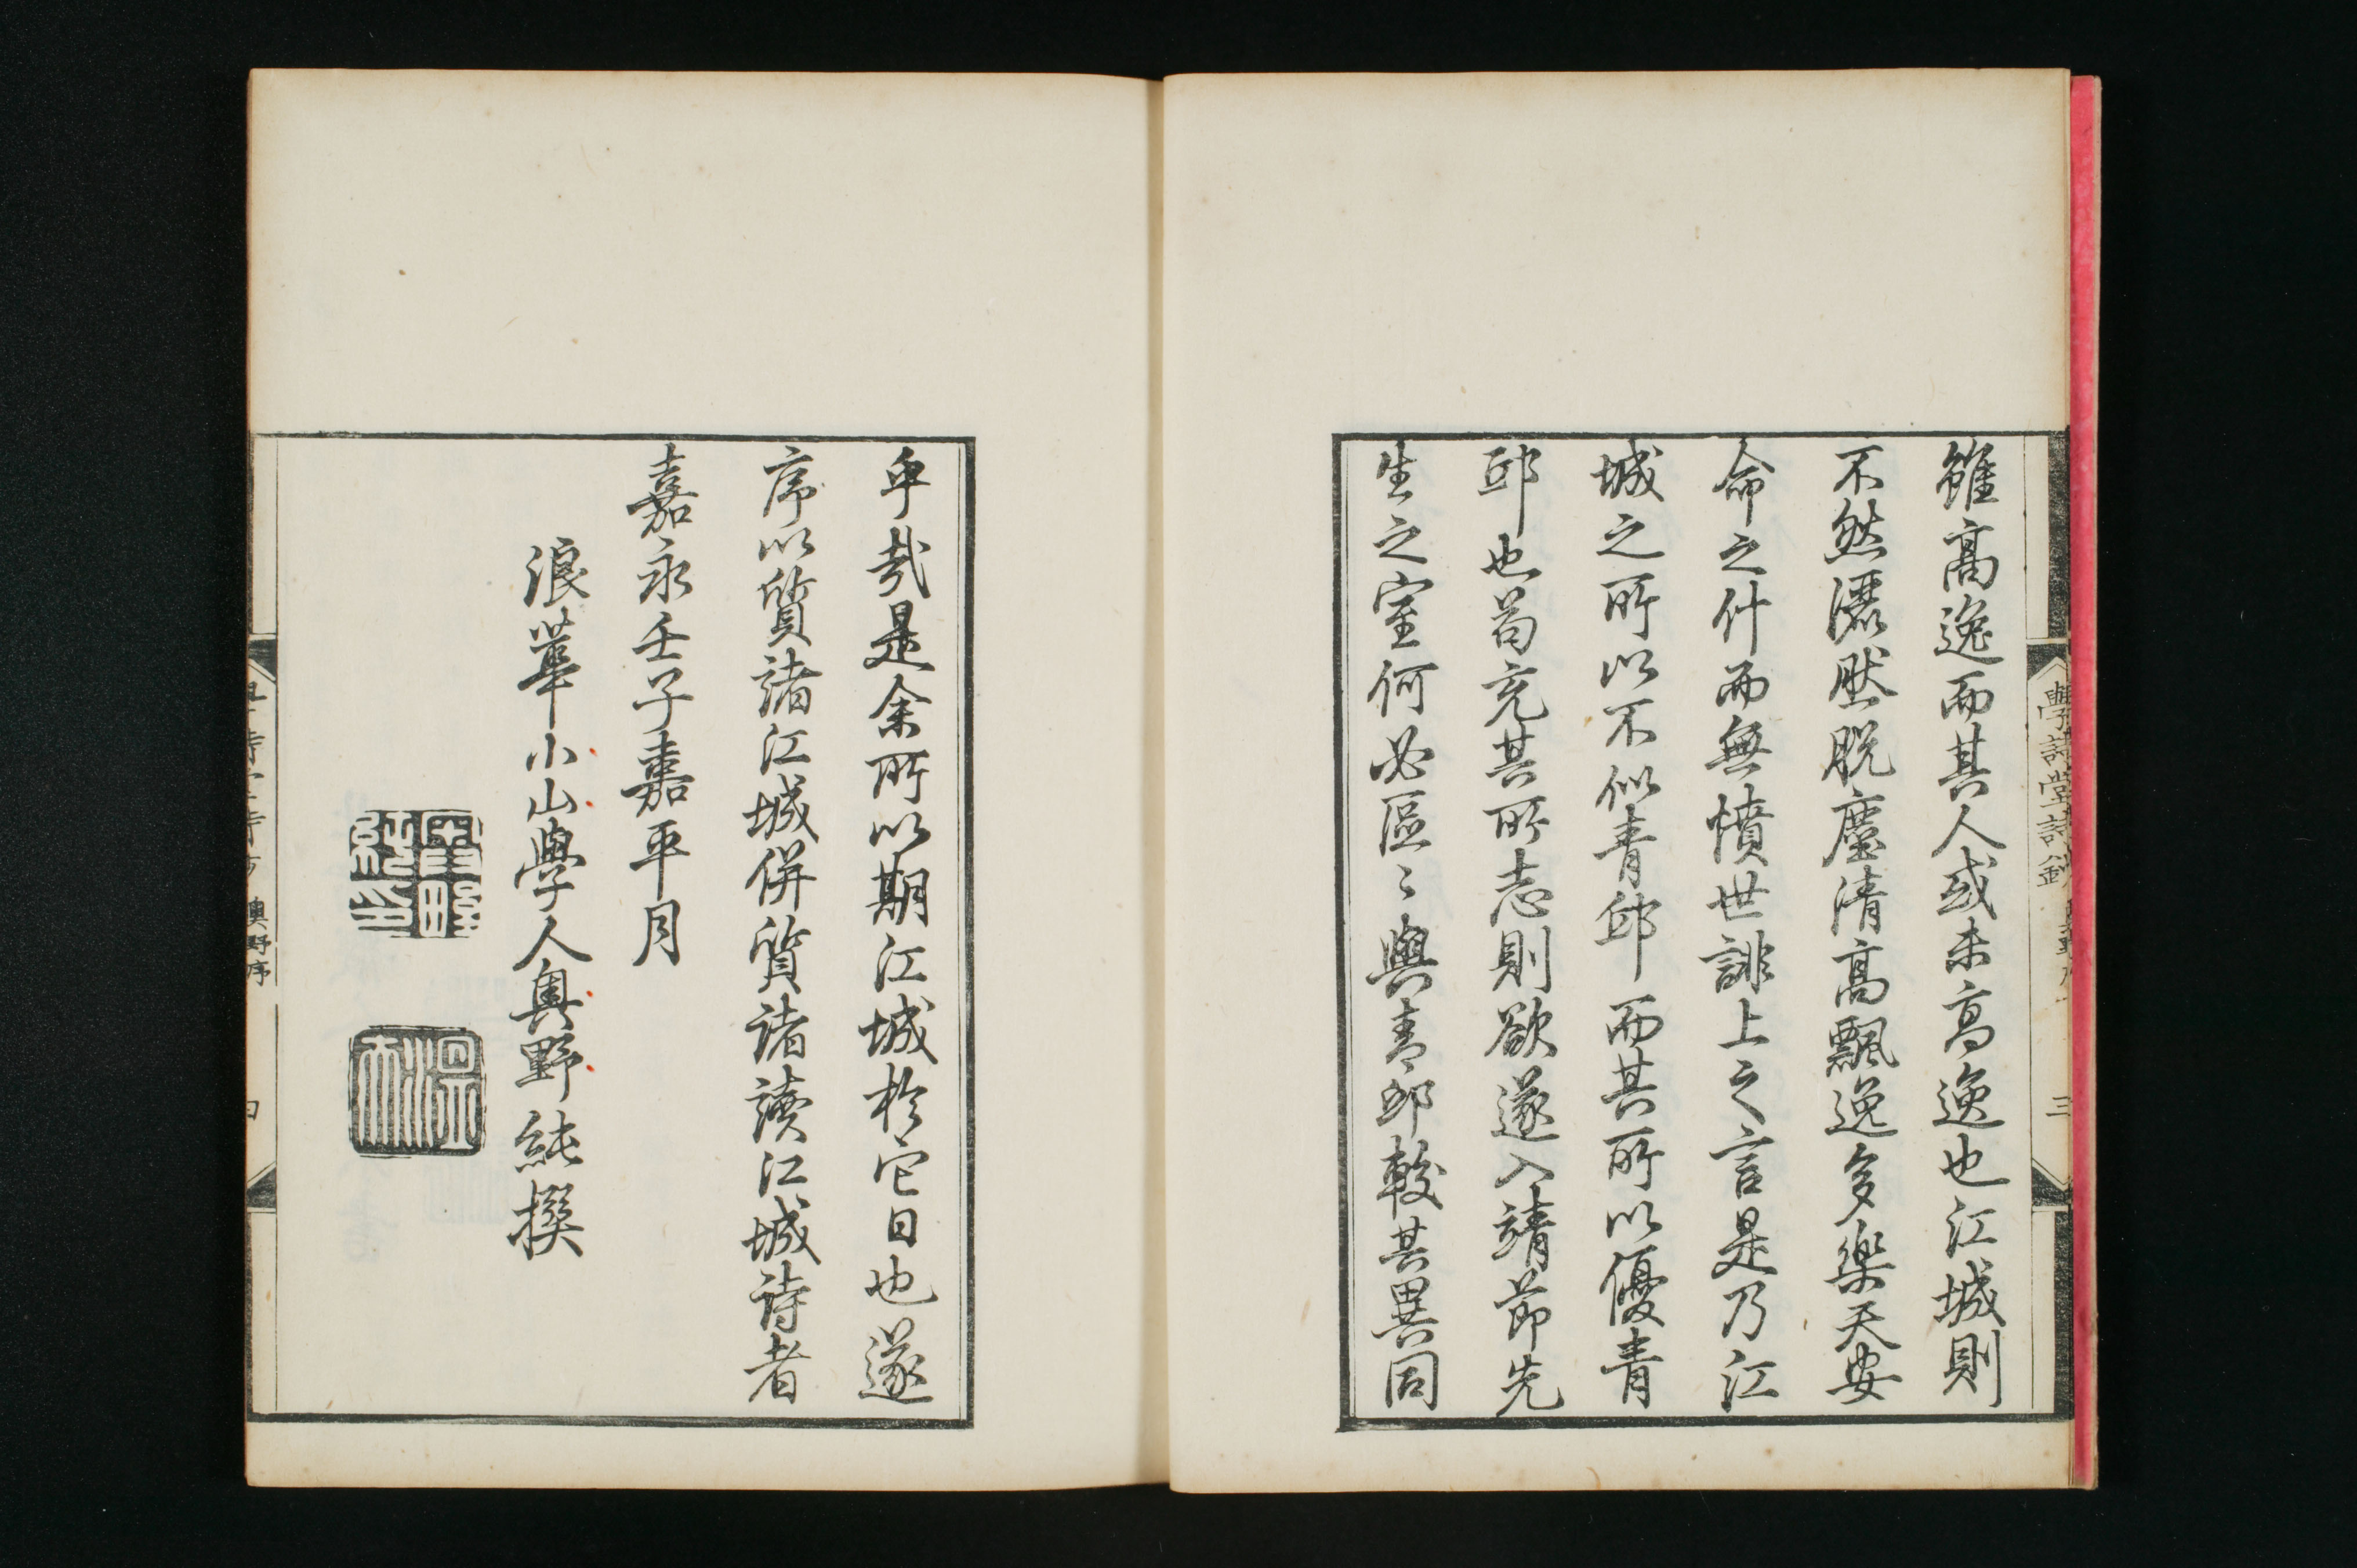 雖高逸而其人或未高逸也江城則
不然灑然脱塵清高飄逸多樂天安
命之什而無憤世誹上之言是乃江
城之所以不似青邱而其所以優青
邱也苟充其所志則欲遂入靖節先
生之室何必區〻與青邱較其異同
乎哉是余所以期江城於它日也遂
序以質諸江城併質諸讀江城詩者
嘉永壬子嘉平月
浪華小山學人奧野純撰
學詩堂詩鈔
三
奧野序